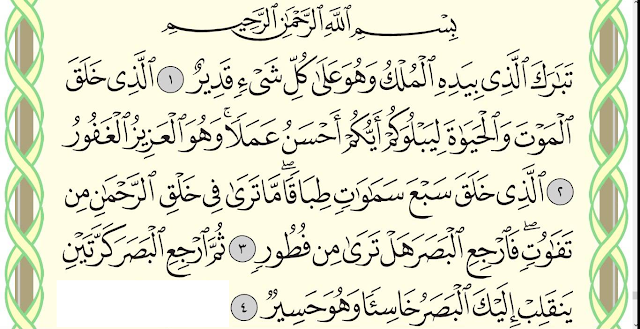 بِسْمِ اللَّهِ الرَّحْمَٰنِ الرَّحِيمِ
تَبَٰرَكَ ٱلَّذِى بِيَدِهِ ٱلْمُلْكُ وَهُوَ عَلَىٰ كُلِّ شَىْءٍ قَدِيرٌ ١ ٱلَّذِى خَلَقَ
ٱلْمَوْتَ وَٱلْحَيَوٰةَ لِيَبْلُوَكُمْ أَيُّكُمْ أَحْسَنُ عَمَلًا ۚ وَهُوَ ٱلْعَزِيزُ ٱلْغَفُورُ
٢ ٱلَّذِى خَلَقَ سَبْعَ سَمَٰوَٰتٍ طِبَاقًا ۖ مَّا تَرَىٰ فِى خَلْقِ ٱلرَّحْمَٰنِ مِن
تَفَٰوُتٍ ۖ فَٱرْجِعِ ٱلْبَصَرَ هَلْ تَرَىٰ مِن فُطُورٍ ٣ ثُمَّ ٱرْجِعِ ٱلْبَصَرَ كَرَّتَيْنِ
يَنقَلِبْ إِلَيْكَ ٱلْبَصَرُ خَاسِئًا وَهُوَ حَسِيرٌ ٤